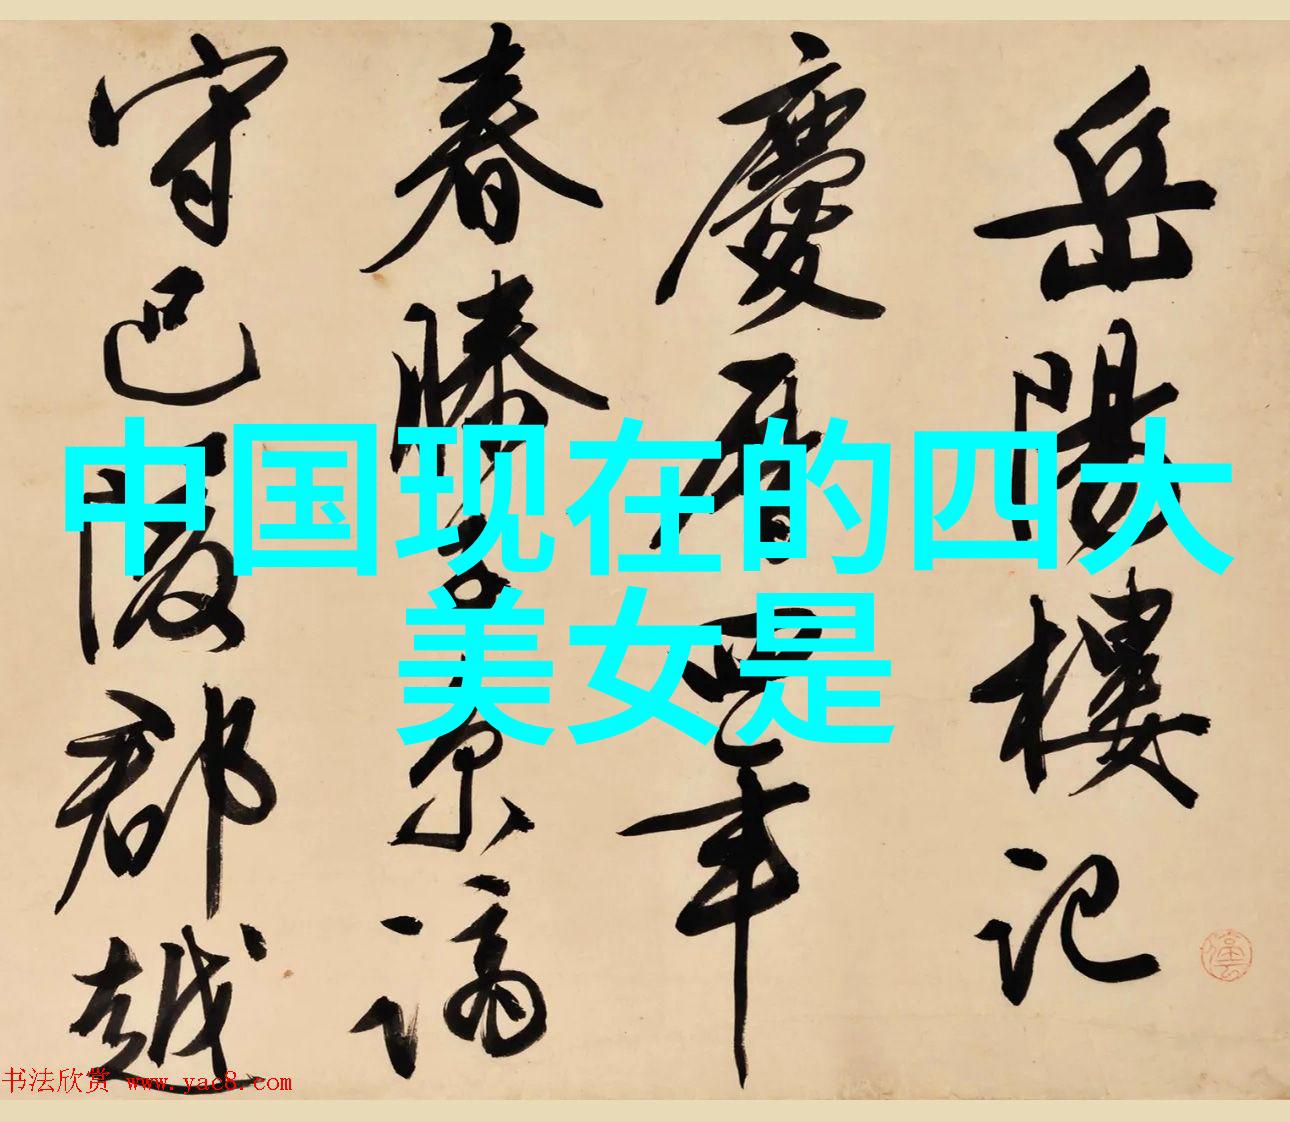 岳陽樓記
慶曆四年
春滕子京謫
守巴陵郡越
中国现在的四大
美女是
书法欣赏 www.yac8.com